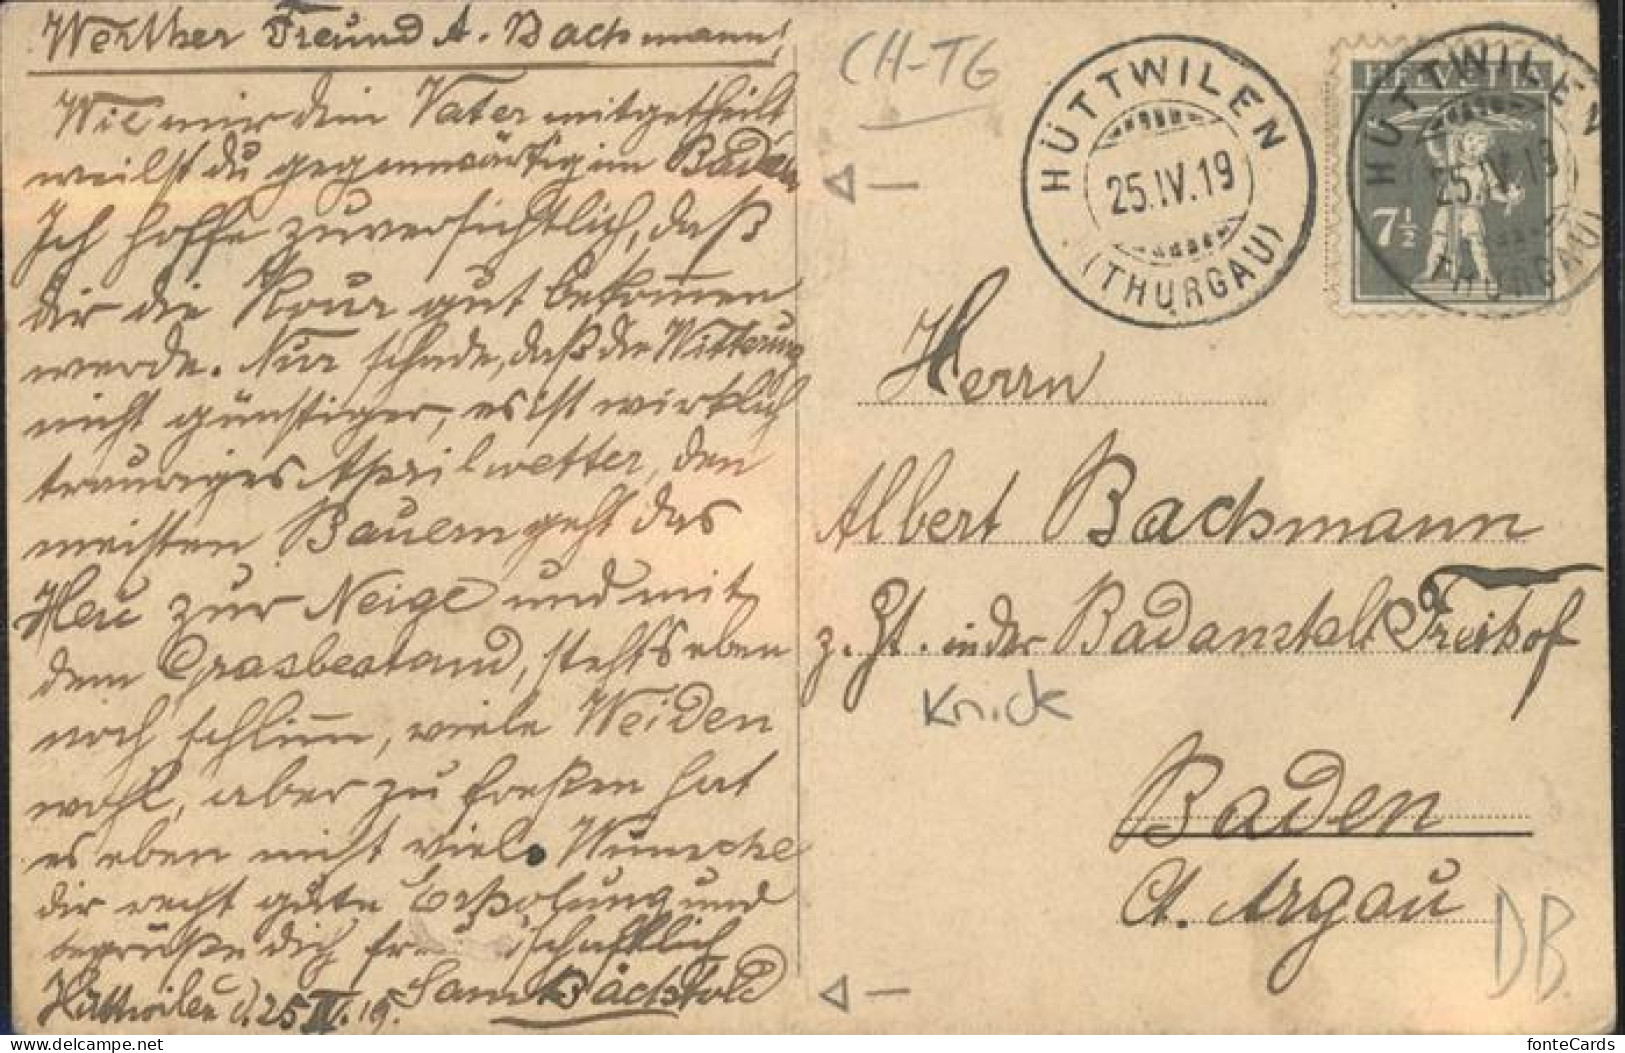 Werther Freund A. Bachmann!
Wie mir dein Vater mitgetheilt,
weilst du gegenwärtig in Baden
Ich hoffe zuversichtlich, daß
dir die Kour gut bekommen
werde. Nur schade, daß die Witterung
nicht günstiger, es ist wirklich
trauriges Aprilwetter, den
meisten Bauern geht das
Heu zur Neige und mit
dem Grasbestand, steht's eben
noch schlimm, viele Weiden
wohl, aber zu freßen hat
es eben nicht viel. Wünsche
dir recht gute Erholung und
begrüße dich freundschaftlich
Sam Bächtold
Hüttwilen d. 25 IV. 19.
CH-TG
HÜTTWILEN
25.IV.19
(THURGAU)
HELVETIA
7½
HÜTTWILEN
25.IV.19
(THURGAU)
Herrn
Albert Bachmann
z. Zt. in der Badanstalt Freihof
Knick
Baden
Ct. Argau
DB
https://www.delcampe.net
fonteCards